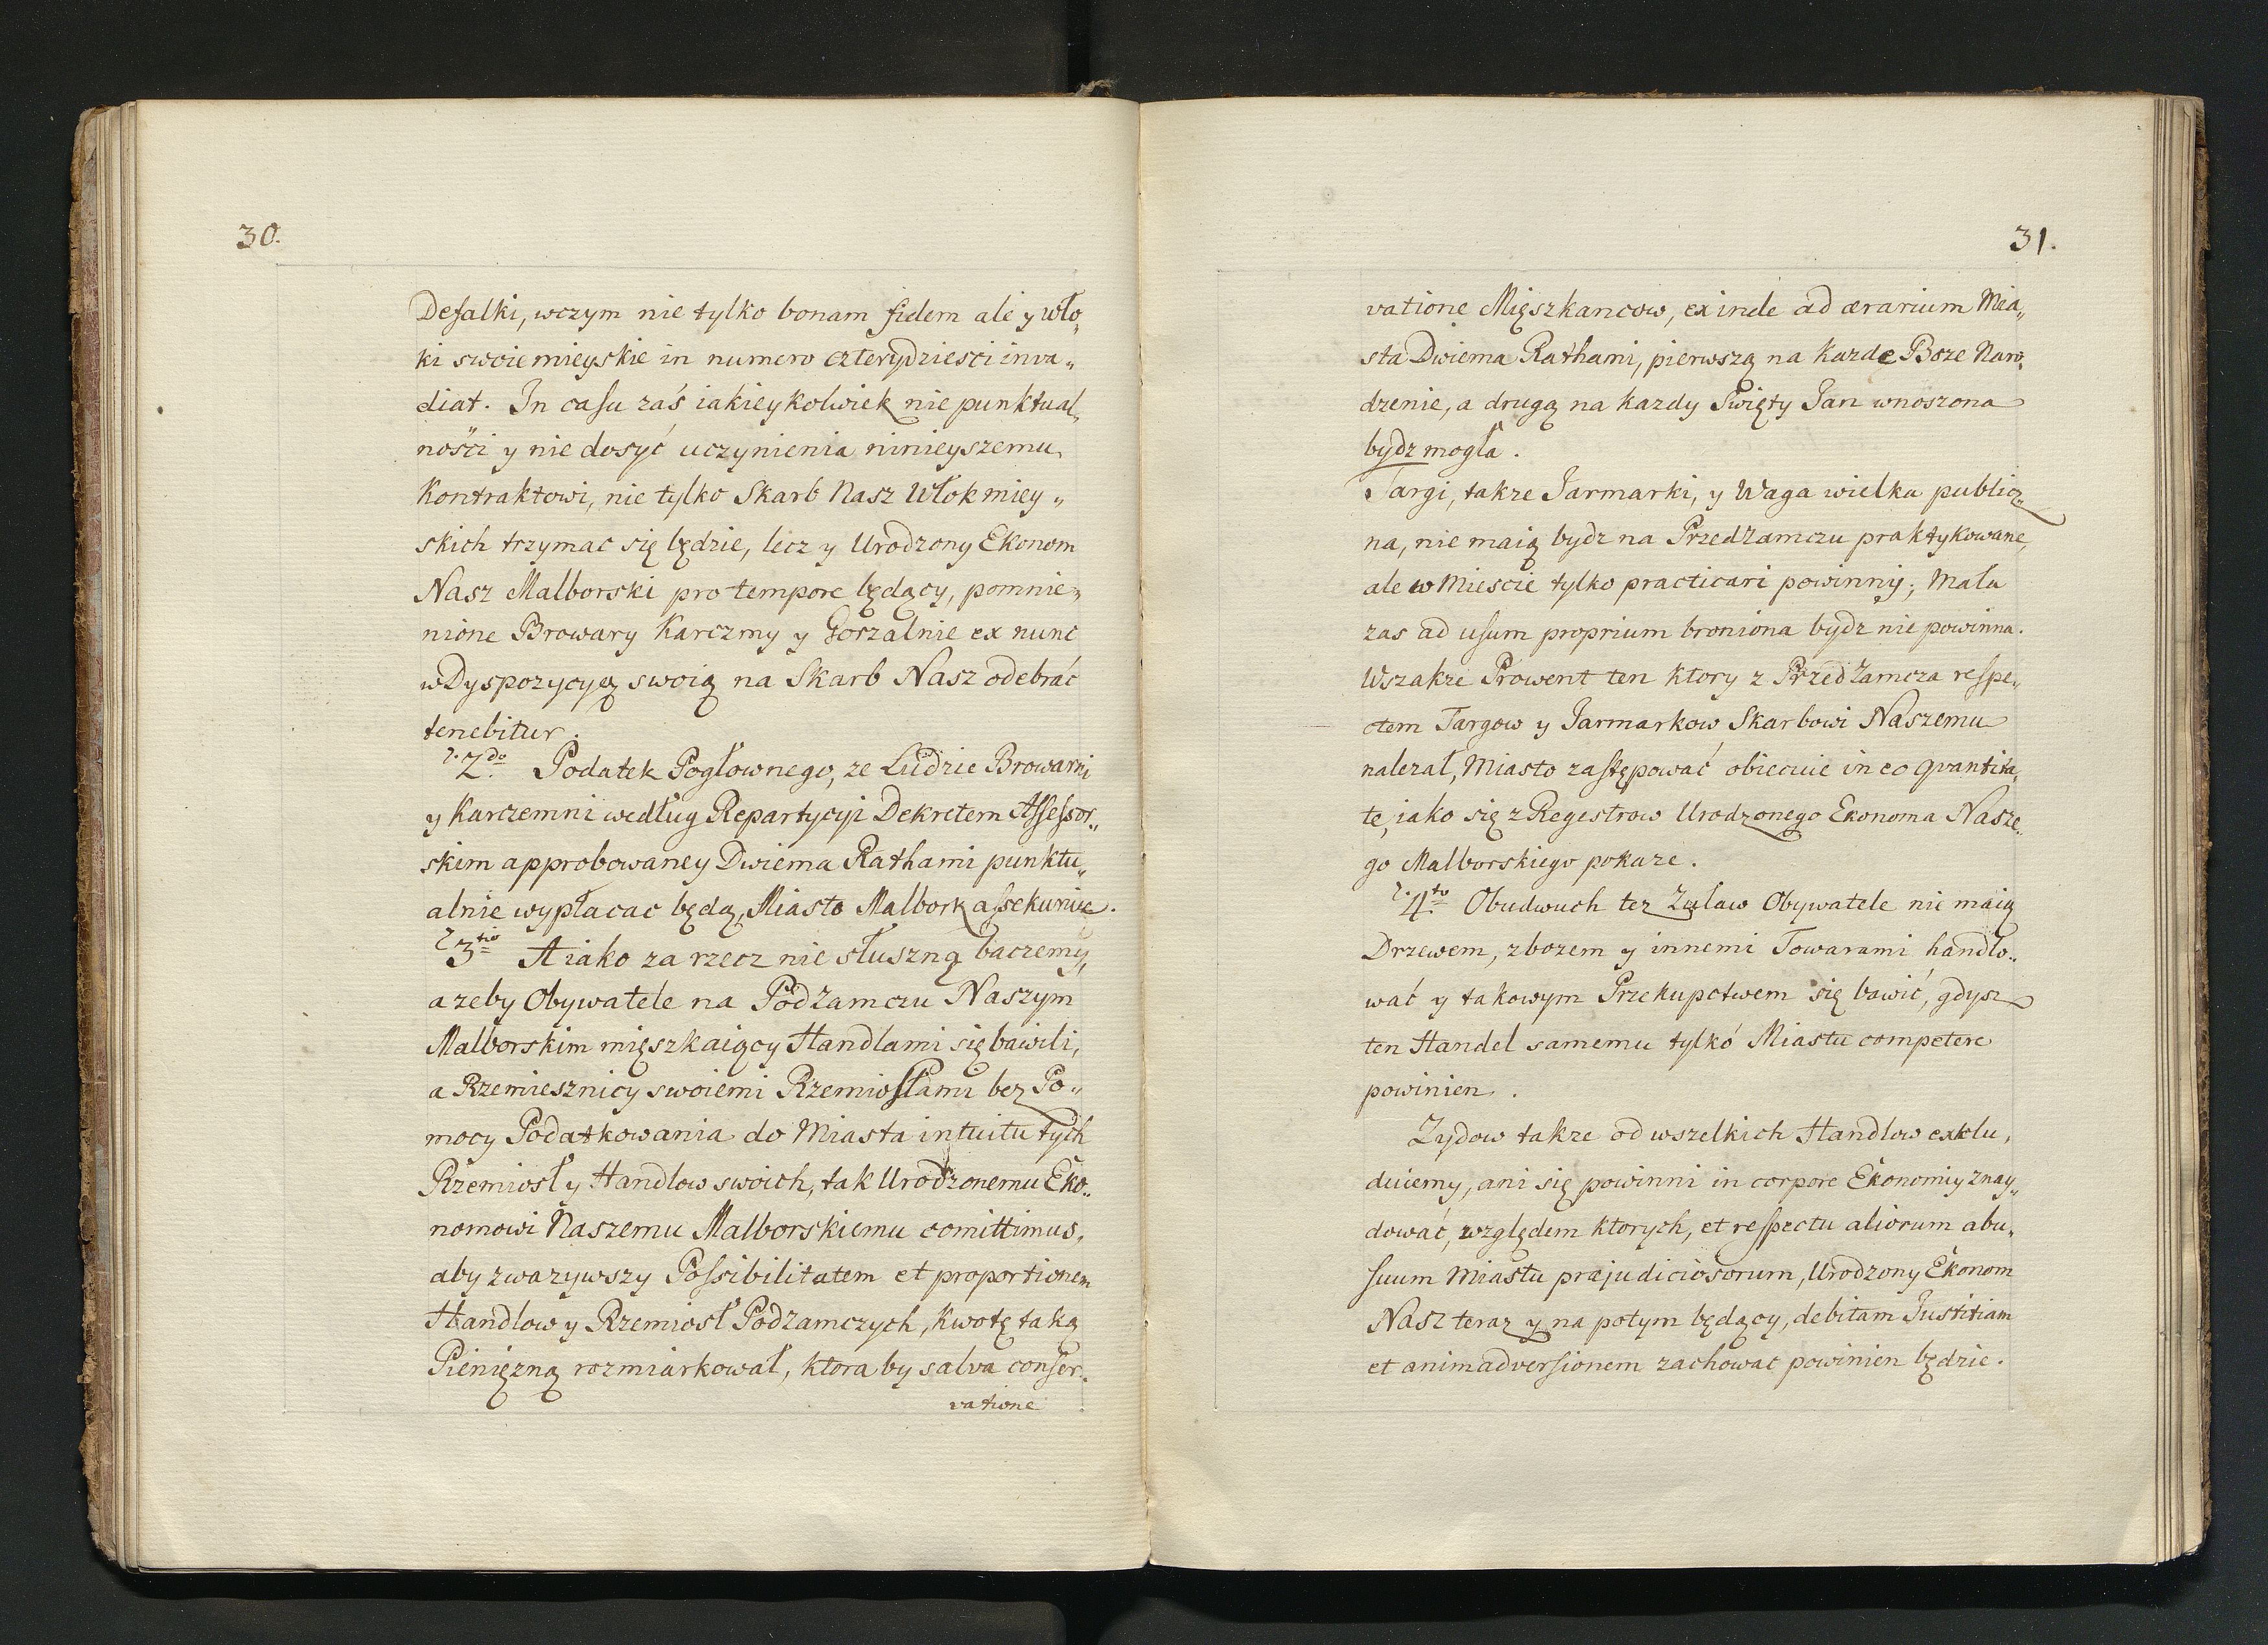 30.
Defalki, wczym nie tylko bonam fidem ale y wło„
ki swoie mieyskie in numero czterydziesci inva„
diat. In casu zaś iakieykolwiek nie punktual„
ności y nie dosyć uczynienia ninieyszemu
Kontraktowi, nie tylko Skarb Nasz Włok miey„
skich trzymac się będzie, lecz y Urodzony Ekonom
Nasz Malborski pro tempore będący, pomnie„
nione Browary Karczmy y Gorzalnie ex nunc
w Dyspozycyą swoią na Skarb Nasz odebrać
tenebitur.
2do Podatek Pogłownego, ze Ludzie Browarni
y Karczemni według Repartycyi Dekretem Assessor„
skim approbowaney Dwiema Rathami punktu„
alnie wypłacac będą, Miasto Malbork assekuruie.
3tio A iako za rzecz nie słuszną baczemy,
azeby Obywatele na PodZamczu Naszym
Malborskim mięszkaiący Handlami się bawili,
a Rzemiesznicy swoiemi Rzemiosłami bez Po„
mocy Podatkowania do Miasta intuitu tych
Rzemiosł y Handlow swoich, tak Urodzonemu Eko„
nomowi Naszemu Malborskiemu comittimus,
aby zwazywszy Possibilitatem et proportionem
Handlow y Rzemiosł Podzamczych, kwotę taką
Pienięzną rozmiarkował, ktora by salva conser„
vatione
31.
vatione Mięszkancow, exinde ad ærarium Mia„
sta Dwiema Rathami, pierwszą na Kazde Boze Naro„
dzenie, a drugą na kazdy Swięty Jan wnoszona
bydz mogła.
Targi, takze Jarmarki, y Waga wielka publicz„
na, nie maią bydz na PrzedZamczu praktykowane,
ale w Miescie tylko practicari powinny; Mała
zas ad usum proprium broniona bydz nie powinna.
Wszakze Prowent ten ktory z PrzedZamcza respe„
ctem Targow y Jarmarkow Skarbowi Naszemu
nalezał, Miasto zastępować obiecuie in eo qvantita„
te, iako się z Regestrow Urodzonego Ekonoma Nasze„
go Malborskiego pokaze.
4to Obudwuch tez Zuław Obywatele nie maią
Drzewem, zbozem y innemi Towarami handlo„
wać y takowym Przekupctwem się bawić, gdysz
ten Handel samemu tylkó Miastu competere
powinien.
Zydow takze od wszelkich Handlow exklu„
duiemy, ani się powinni in corpore Ekonomiy znay„
dować, względem ktorych, et respectu aliorum abu„
suum Miastu præjudiciosorum, Urodzony Ekonom
Nasz teraz y na potym będący, debitam Justitiam
et animadversionem zachowac powinien będzie.